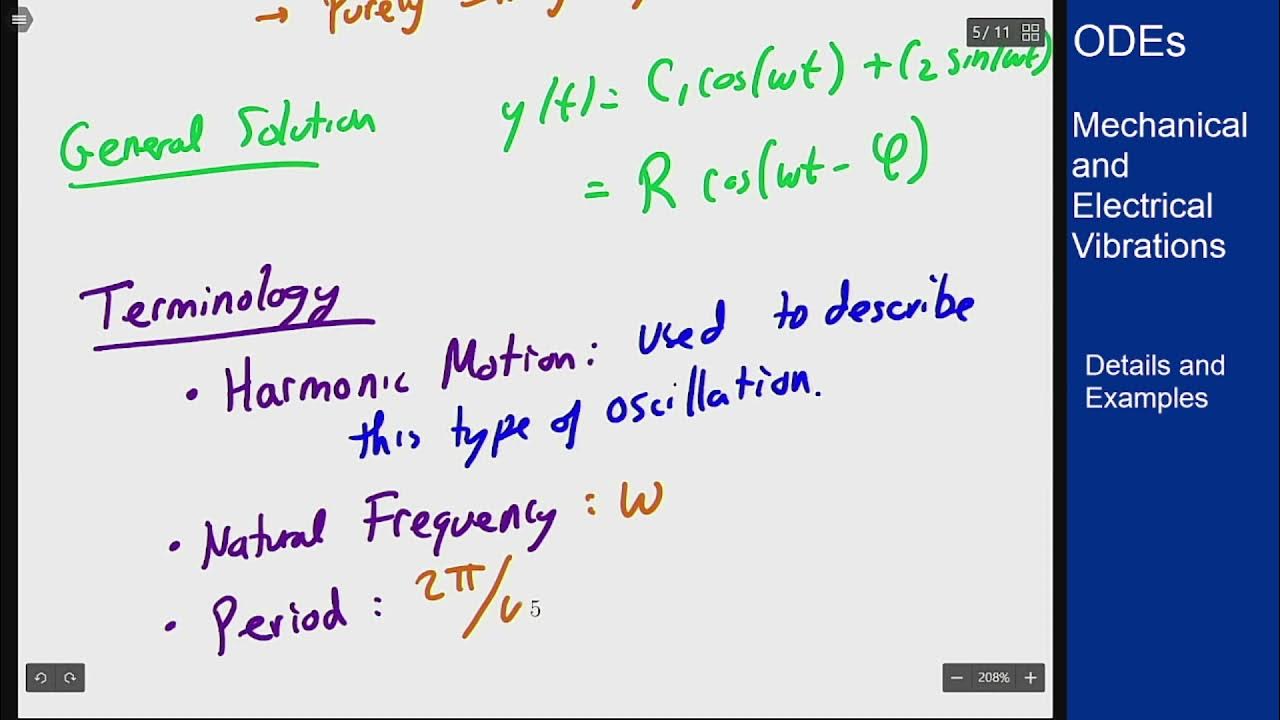 → Purely
5 / 11
General Solution
y(t) = C₁ cos(ωt) + C₂ sin(ωt)
= R cos(ωt - φ)
Terminology
• Harmonic Motion: used to describe
this type of oscillation.
• Natural Frequency: ω
• Period: 2π/
5
208%
ODEs
Mechanical
and
Electrical
Vibrations
Details and
Examples